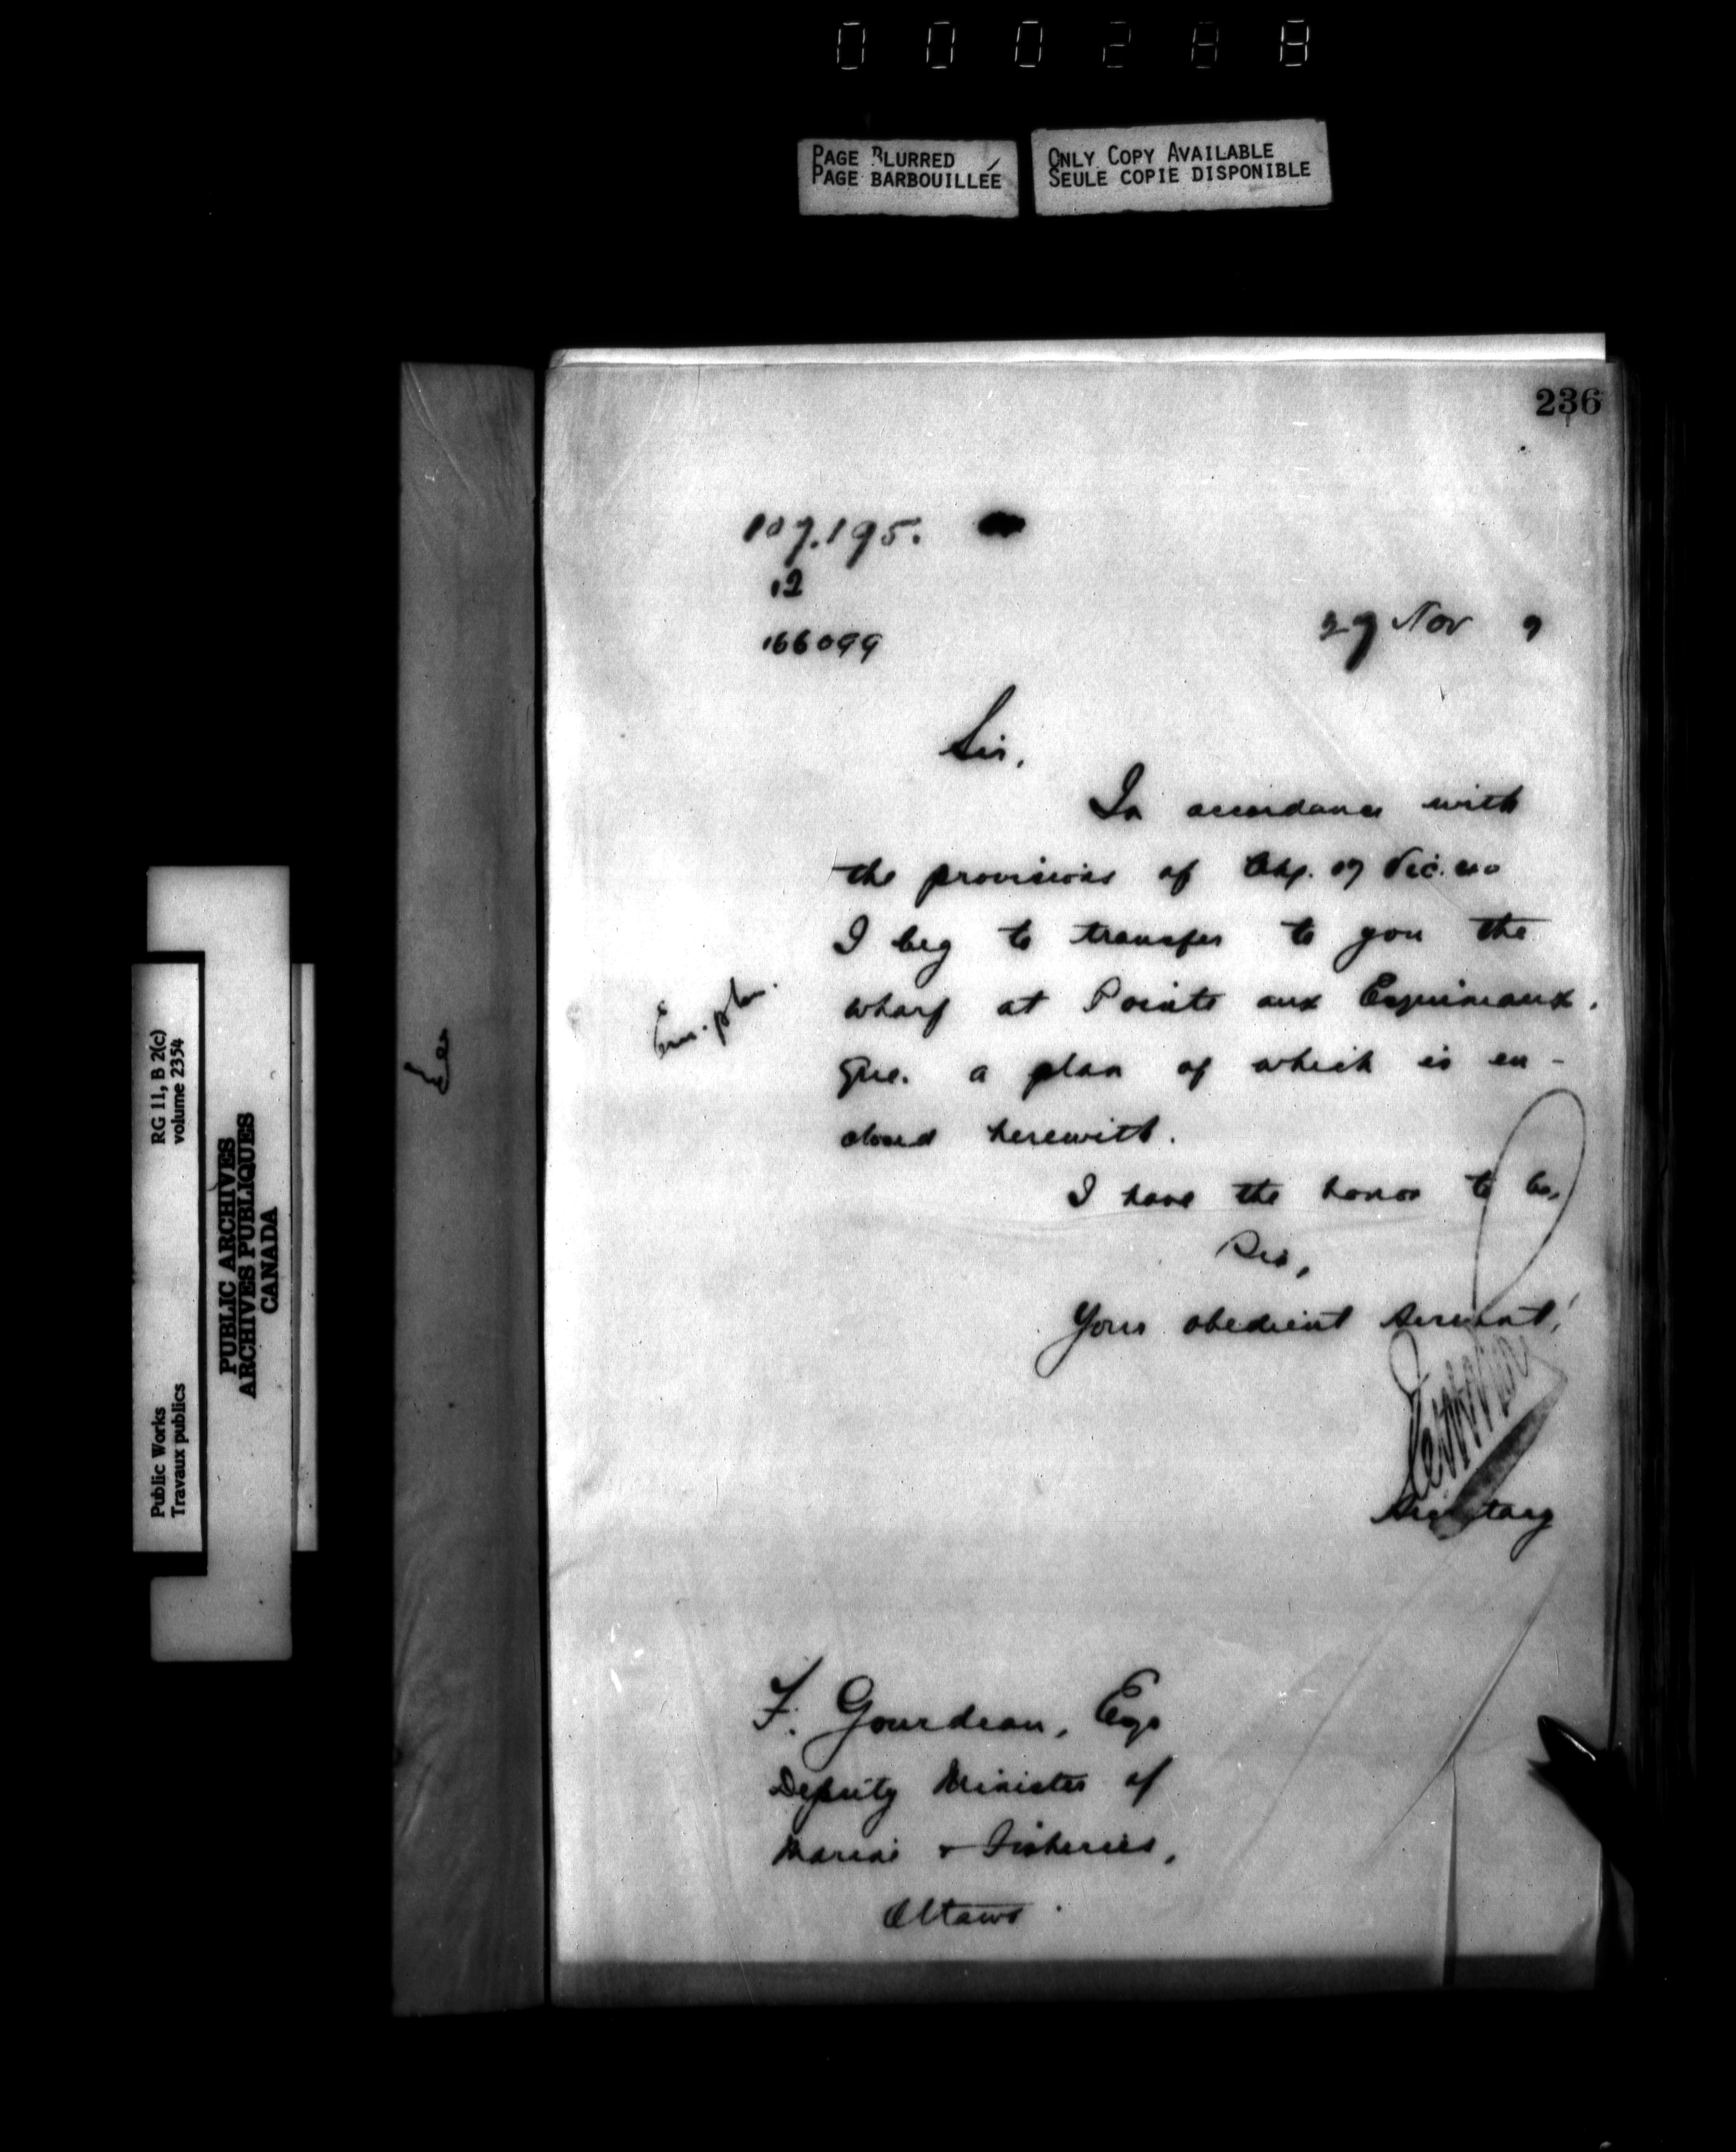 000288
PAGE BLURRED
PAGE BARBOUILLÉE
ONLY COPY AVAILABLE
SEULE COPIE DISPONIBLE
236
107.195.
12
166099
27 Nov 9
Sir,
In accordance with
the provisions of Chp. 17 Vic. 40
I beg to transfer to you the
wharf at Pointe aux Esquimaux,
Que. a plan of which is en-
closed herewith.
I have the honor to be,
Sir,
Your obedient servant,
Secretary
F. Gourdeau, Esq
Deputy Minister of
Marine & Fisheries,
Ottawa.
RG 11, B 2(c)
volume 2354
Public Works
Travaux publics
PUBLIC ARCHIVES
ARCHIVES PUBLIQUES
CANADA